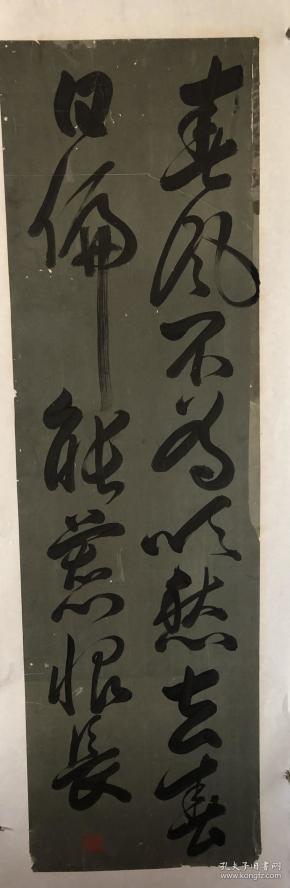 春風不為吹愁去春
日偏能惹恨長
孔夫子旧书网
www.kongfz.com